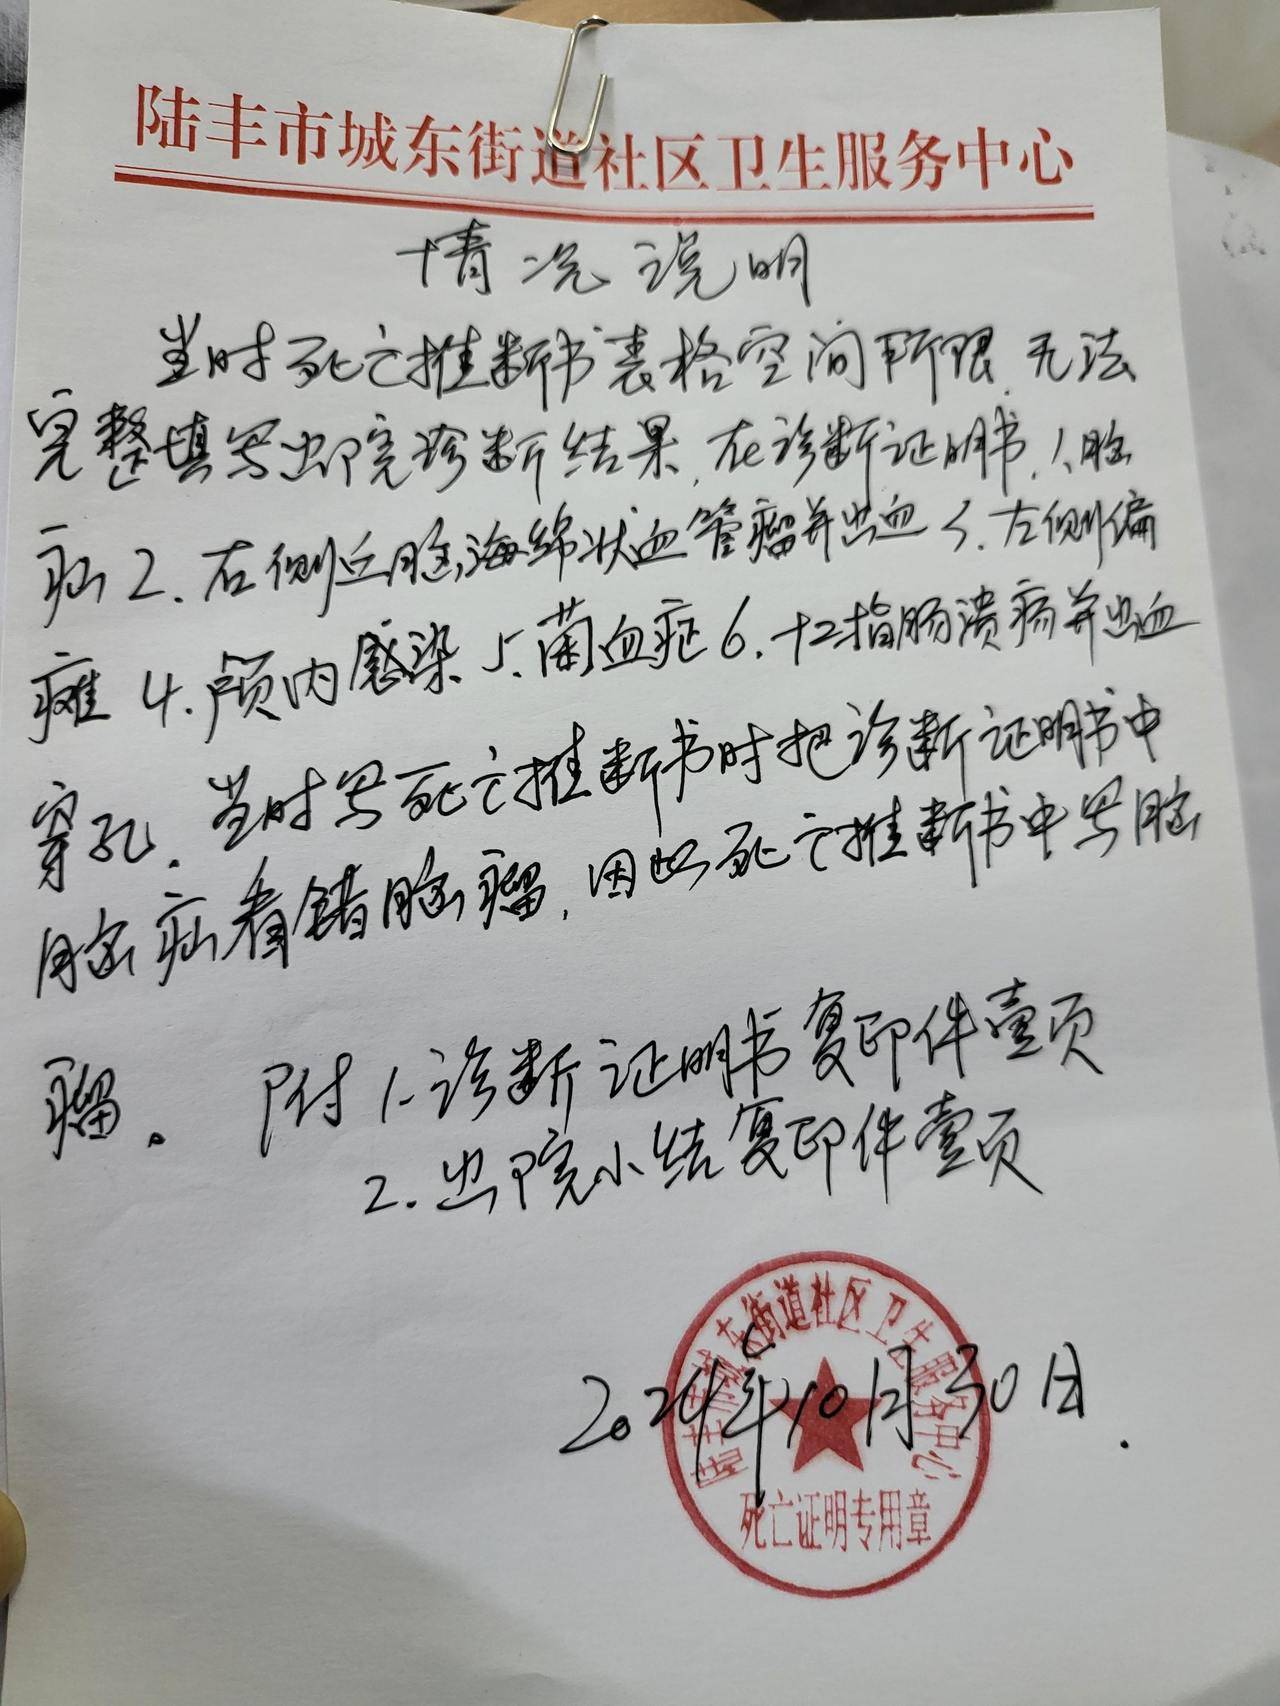 陆丰市城东街道社区卫生服务中心
情况说明
当时死亡推断书表格空间所限,无法
完整填写出院诊断结果,在诊断证明书,1.脑
疝2.右侧丘脑海绵状血管瘤并出血3.左侧偏
瘫4.颅内感染5.菌血症6.十二指肠溃疡并出血
穿孔.当时写死亡推断书时把诊断证明书中
脑疝看错脑瘤,因此死亡推断书中写脑
瘤。附1.诊断证明书复印件壹页
2.出院小结复印件壹页
陆丰市城东街道社区卫生服务中心
2024年10月30日.
死亡证明专用章